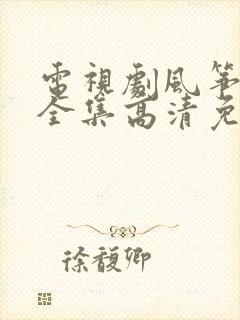 電視劇風箏
全集高清免
徐馥卿